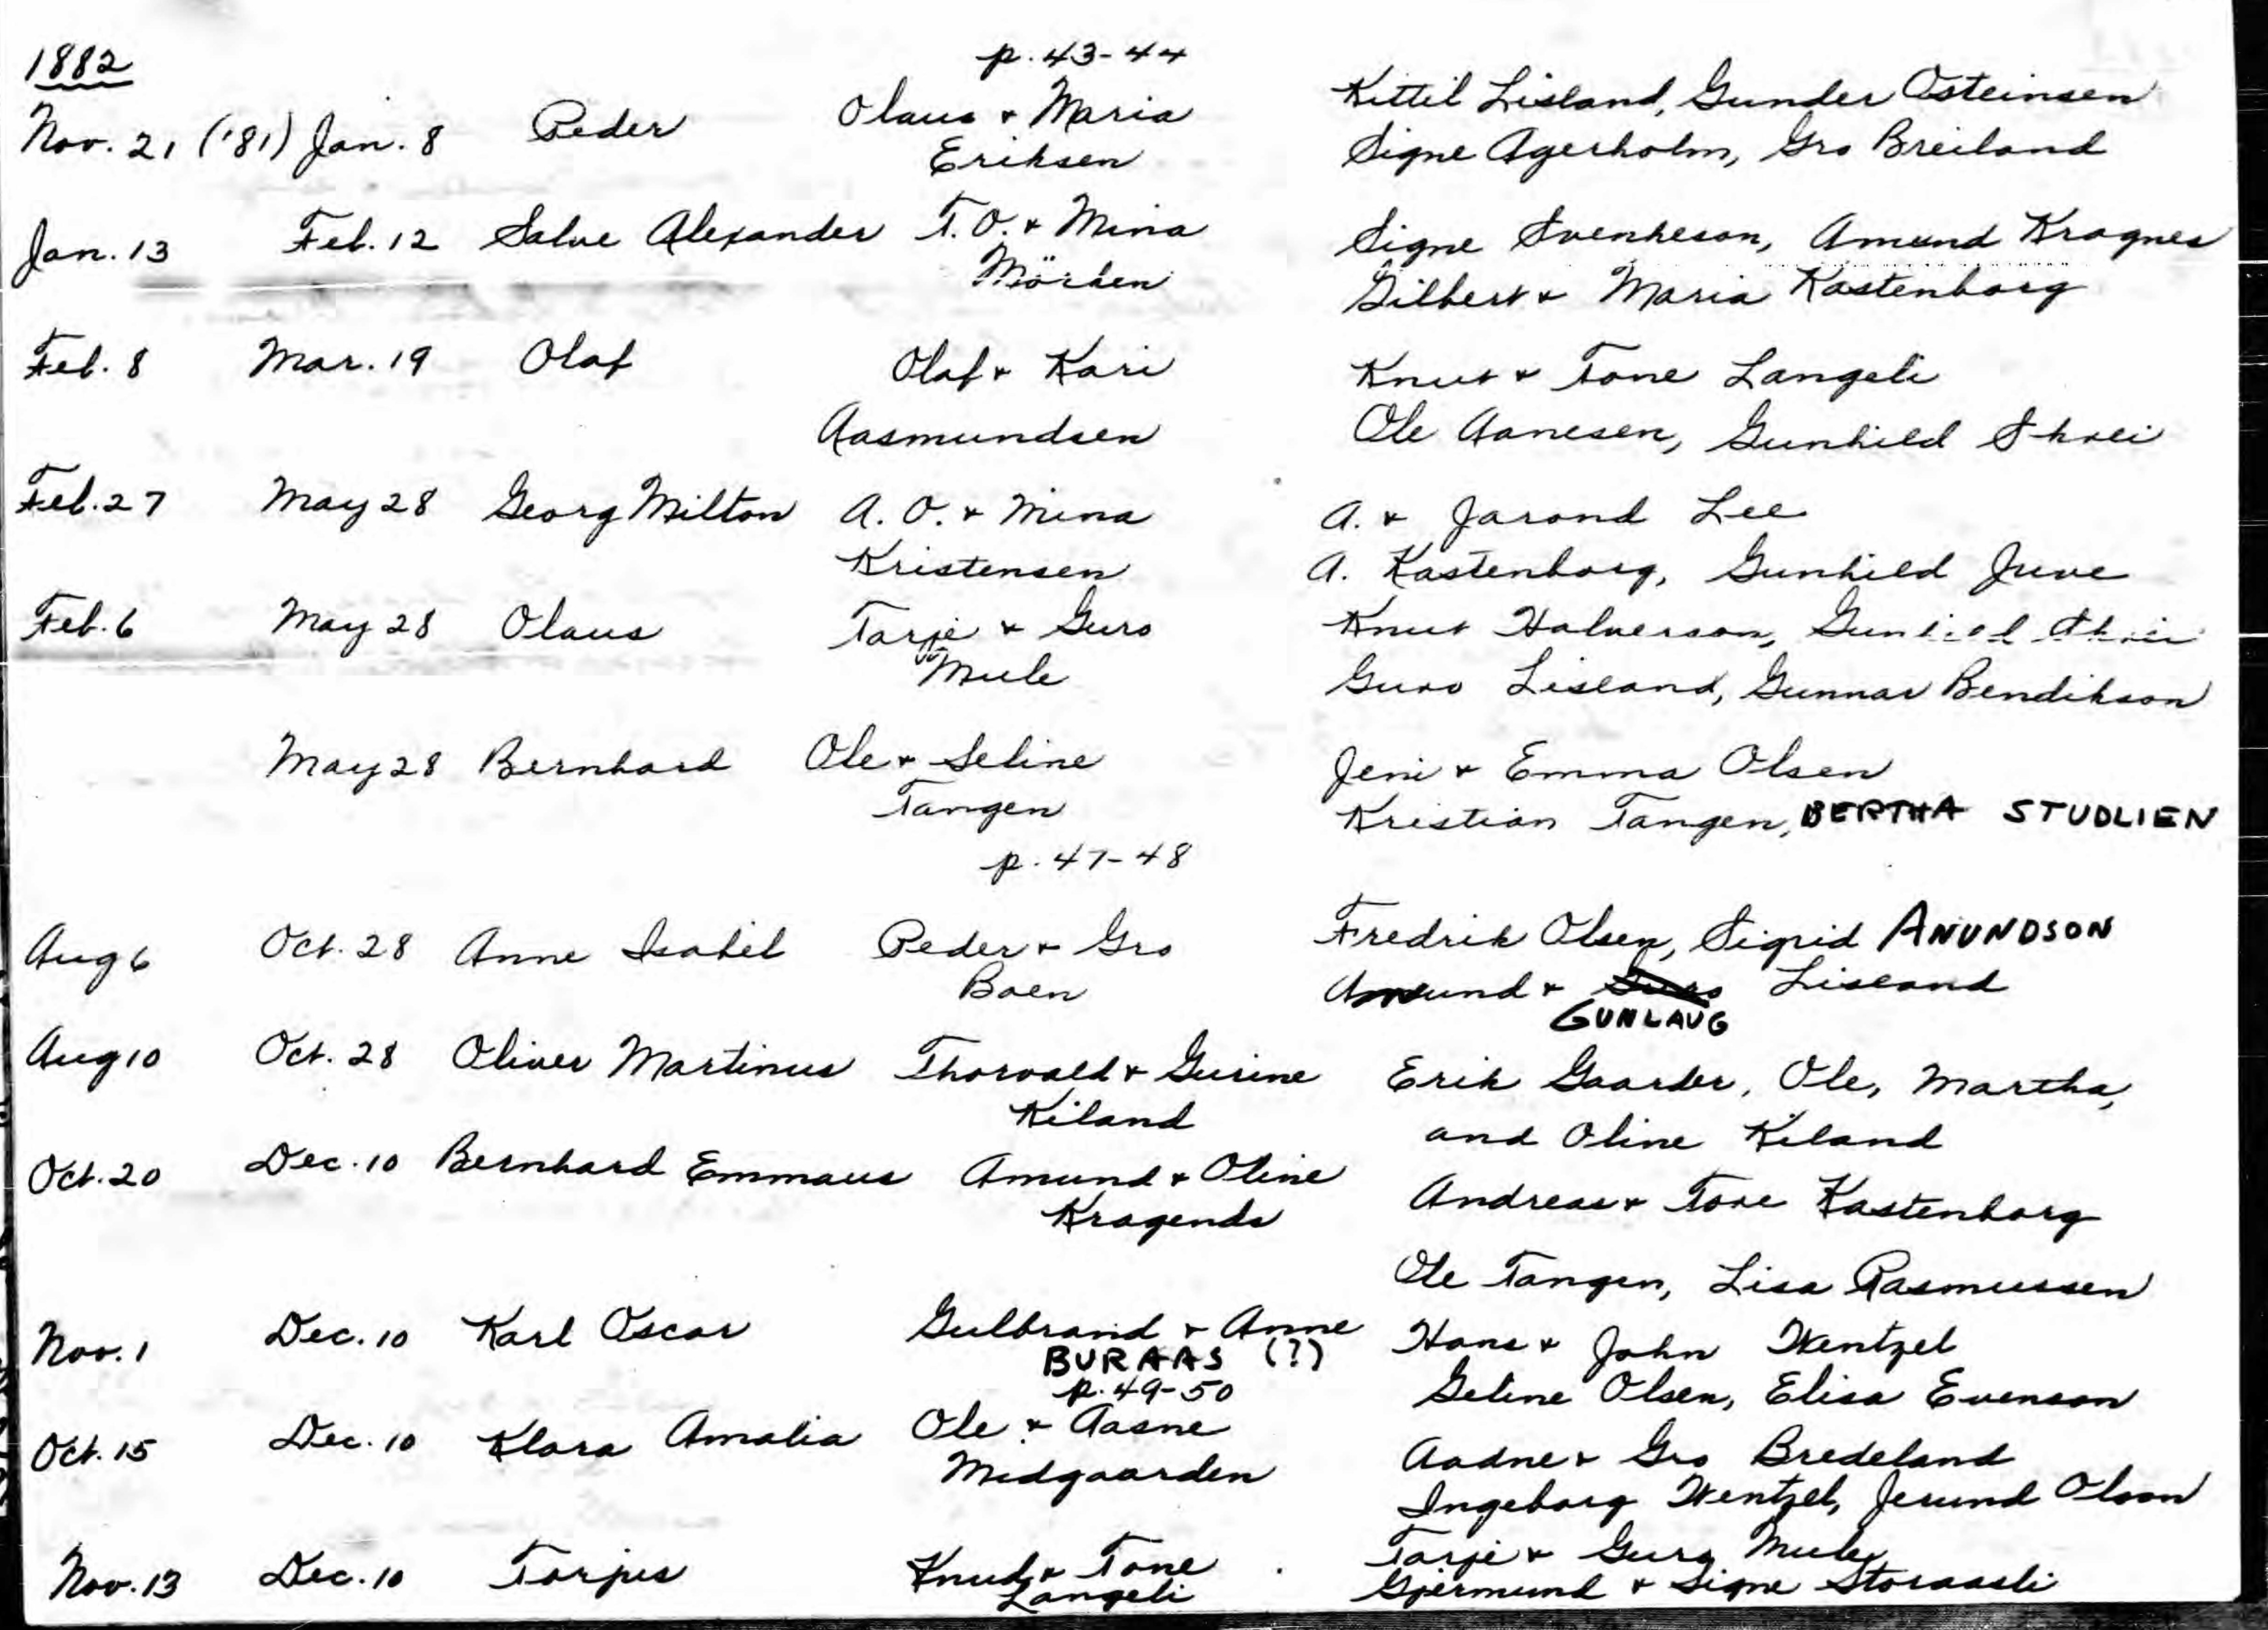 1882
p. 43-44
Nov. 21 ('81) Jan. 8 Peder Olaus + Maria Kittil Lisland, Gunder Osteinsen
Eriksen Signe Agerholm, Gro Breiland
Jan. 13 Feb. 12 Salve Alexander T. O. + Mina Signe Svenkeson, Amund Kragnes
Mörken Gilbert + Maria Kastenborg
Feb. 8 Mar. 19 Olaf Olaf + Kari Knut + Tone Langeli
Aasmundsen Ole Aanesen, Gunhild Skrei
Feb. 27 May 28 Georg Milton A. O. + Mina A. + Jarond Lee
Kristensen A. Kastenborg, Gunhild Juve
Feb. 6 May 28 Olaus Tarje + Guro Knut Halverson, Gunhild Skrei
Mule Guro Lisland, Gunnar Bendikson
May 28 Bernhard Ole + Seline Jeni + Emma Olsen
Tangen Kristian Tangen, BERTHA STUDLIEN
p. 47-48
Aug 6 Oct. 28 Anne Isabel Peder + Gro Fredrik Olsen, Sigrid ANUNDSON
Boen Amund + Guro Lisland
GUNLAUG
Aug 10 Oct. 28 Oliver Martinus Thorvald + Gurine Erik Gaarder, Ole, Martha,
Kiland and Oline Kiland
Oct. 20 Dec. 10 Bernhard Emmaus Amund + Oline Andreas + Tone Kastenborg
Kragends
Ole Tangen, Lisa Rasmussen
Nov. 1 Dec. 10 Karl Oscar Gulbrand + Anne Hans + John Wentzel
BURAAS (?) Seline Olsen, Elisa Evenson
p. 49-50
Oct. 15 Dec. 10 Klara Amalia Ole + Aasne Aadne + Gro Bredeland
Midgaarden Ingeborg Wentzel, Jerund Olson
Nov. 13 Dec. 10 Torjus Knud + Tone Tarje + Guro Mule
Langeli Gjermund + Signe Storaasli